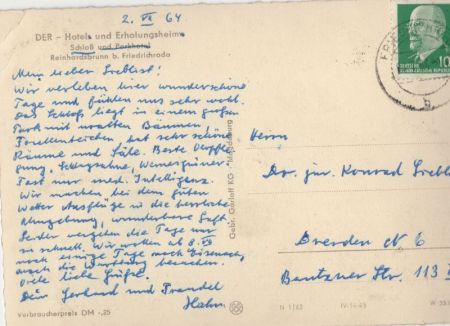 2. VI 64
DER – Hotels und Erholungsheime
Schloß und Parkhotel
Reinhardsbrunn b. Friedrichroda
Mein lieber
Wir verleben hier wunderschöne
Tage und fühlen uns sehr wohl.
Das Schloß liegt in einem großen
Park mit uralten Bäumen,
Forellenteichen, hat sehr schöne
Räume und Säle. Beste Verpfle-
gung, Schlagsahne, Wernesgrüner.
Fast nur med. Intelligenz.
Wir machen bei dem guten
Wetter Ausflüge in die herrliche
Umgebung, wunderbare Luft.
Leider vergehen die Tage nur
zu schnell. Wir wollen ab 8. VI
noch einige Tage nach Eisenach,
auch die Wartburg besuchen.
Viele liebe Grüße
Dein Gerhard und Traudel
Hahn
Verbraucherpreis DM -,25
Gebr. Garloff KG · Magdeburg
DEUTSCHE
DEMOKRATISCHE REPUBLIK
10
Herrn
Dr. jur. Konrad
Dresden N 6
Bautzner Str. 113
N 1/63
IV-14-45